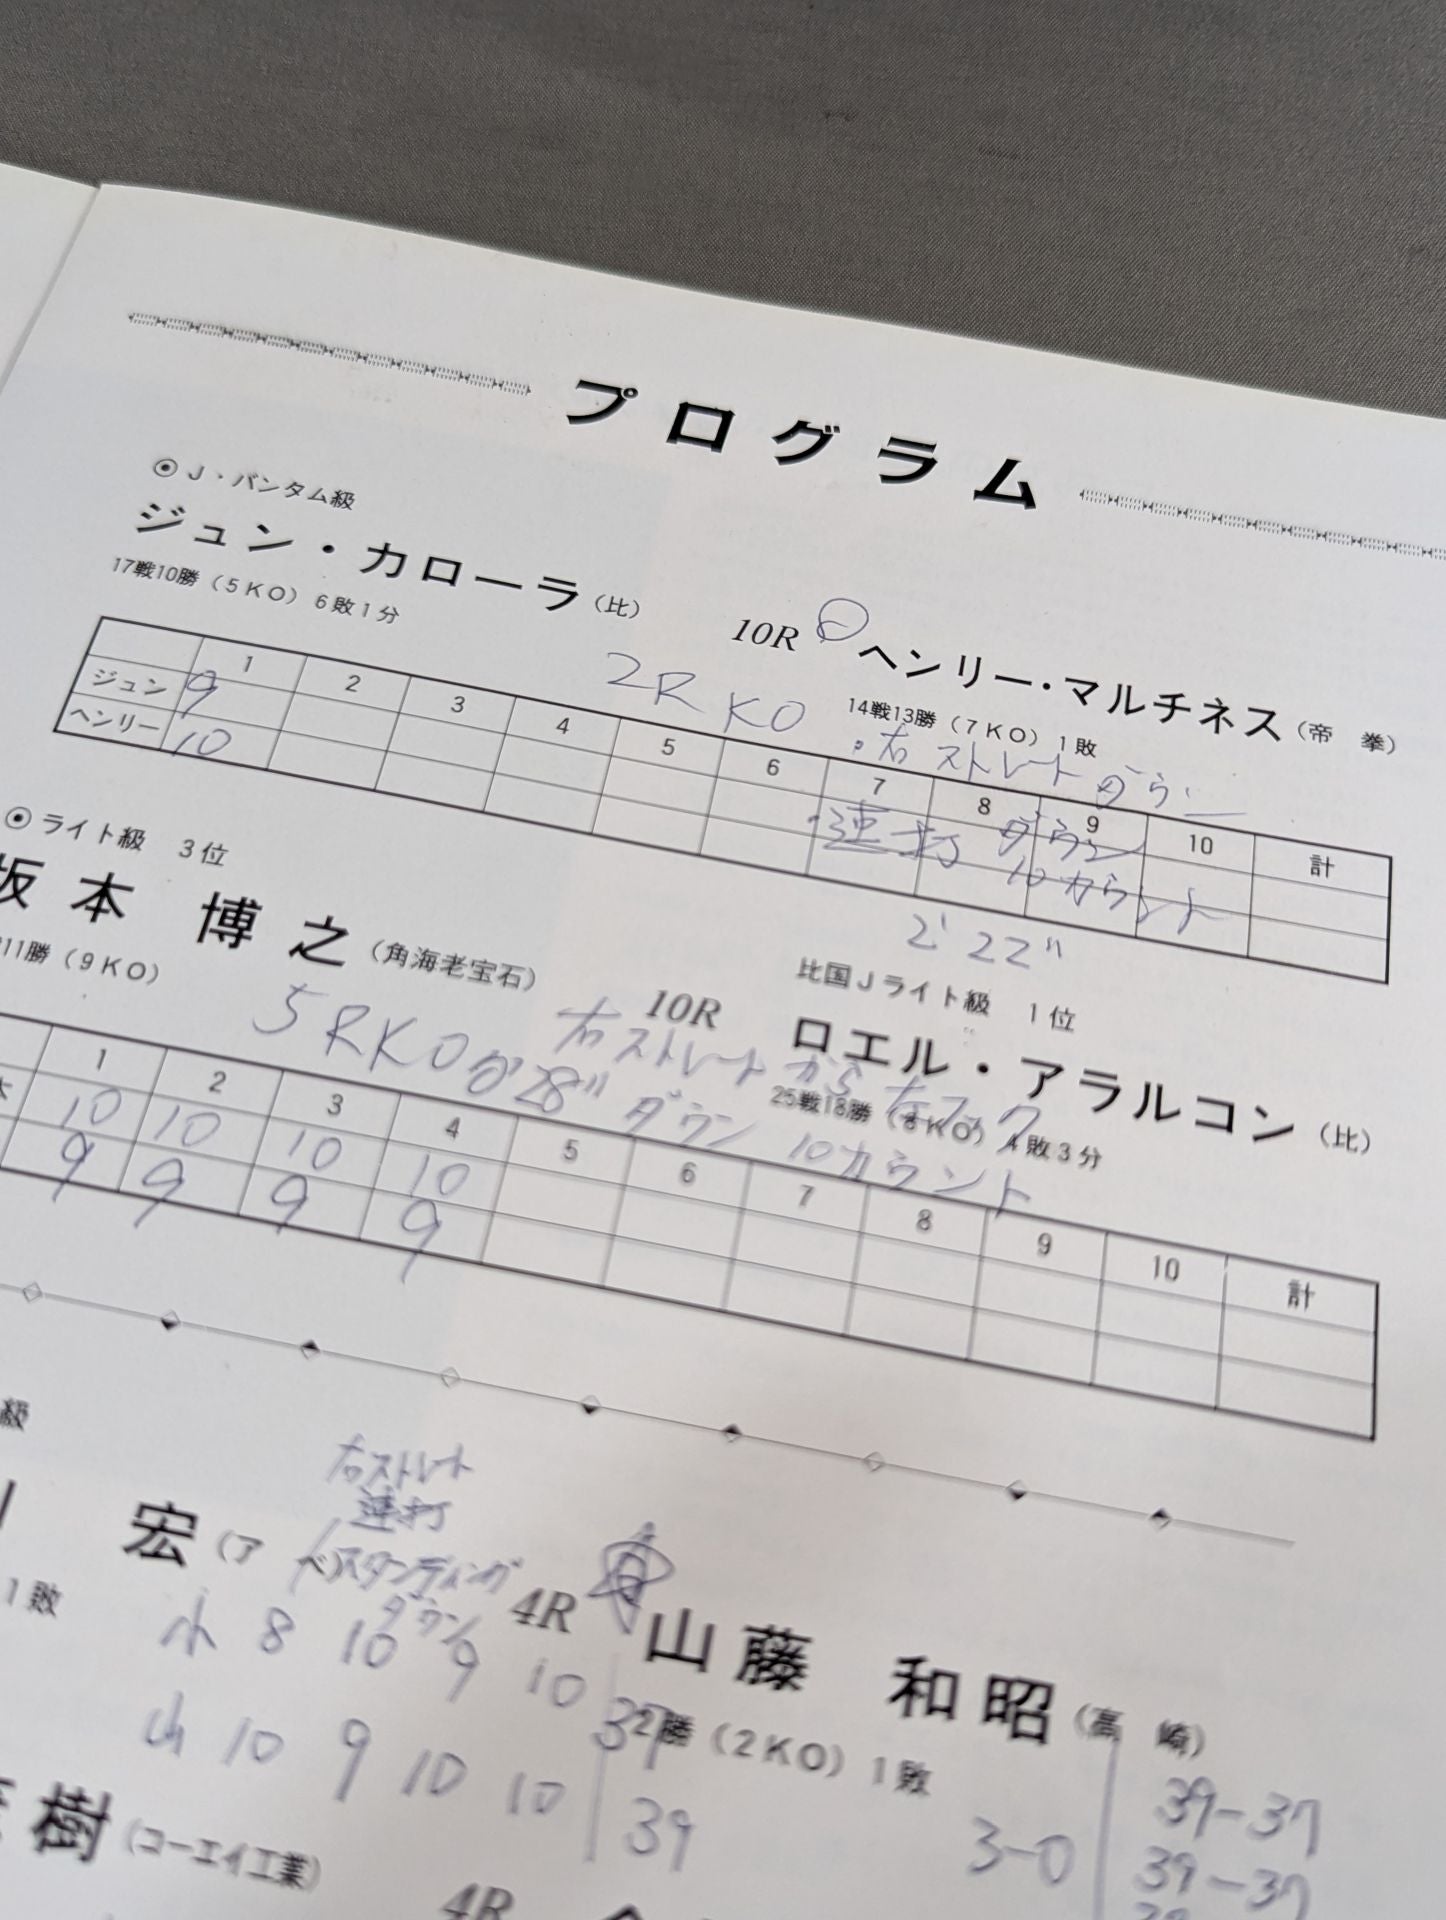 プログラム
◉J・バンタム級
ジュン・カローラ（比）
17戦10勝（5KO）6敗1分
10R ヘンリー・マルチネス（帝 拳）
14戦13勝（7KO）1敗
2R KO
・右ストレート ダウン
・連打 ダウン
10カウント
2' 22"
1 2 3 4 5 6 7 8 9 10 計
ジュン 9
ヘンリー 10
◉ライト級 3位
坂本 博之（角海老宝石）
11勝（9KO）
10R
比国Jライト級 1位
ロエル・アラルコン（比）
25戦18勝（8KO）4敗3分
5RKO 28"
右ストレートから左フック
ダウン 10カウント
1 2 3 4 5 6 7 8 9 10 計
10 10 10 10
9 9 9 9
級
宏（ア ベ）
1敗
右ストレート
連打
スタンディング
ダウン
4R 山藤 和昭（高 崎）
2勝（2KO）1敗
小 8 10 9 10 37
山 10 9 10 10 39
3-0
39-37
39-37
樹（コーエイ工業）
4R